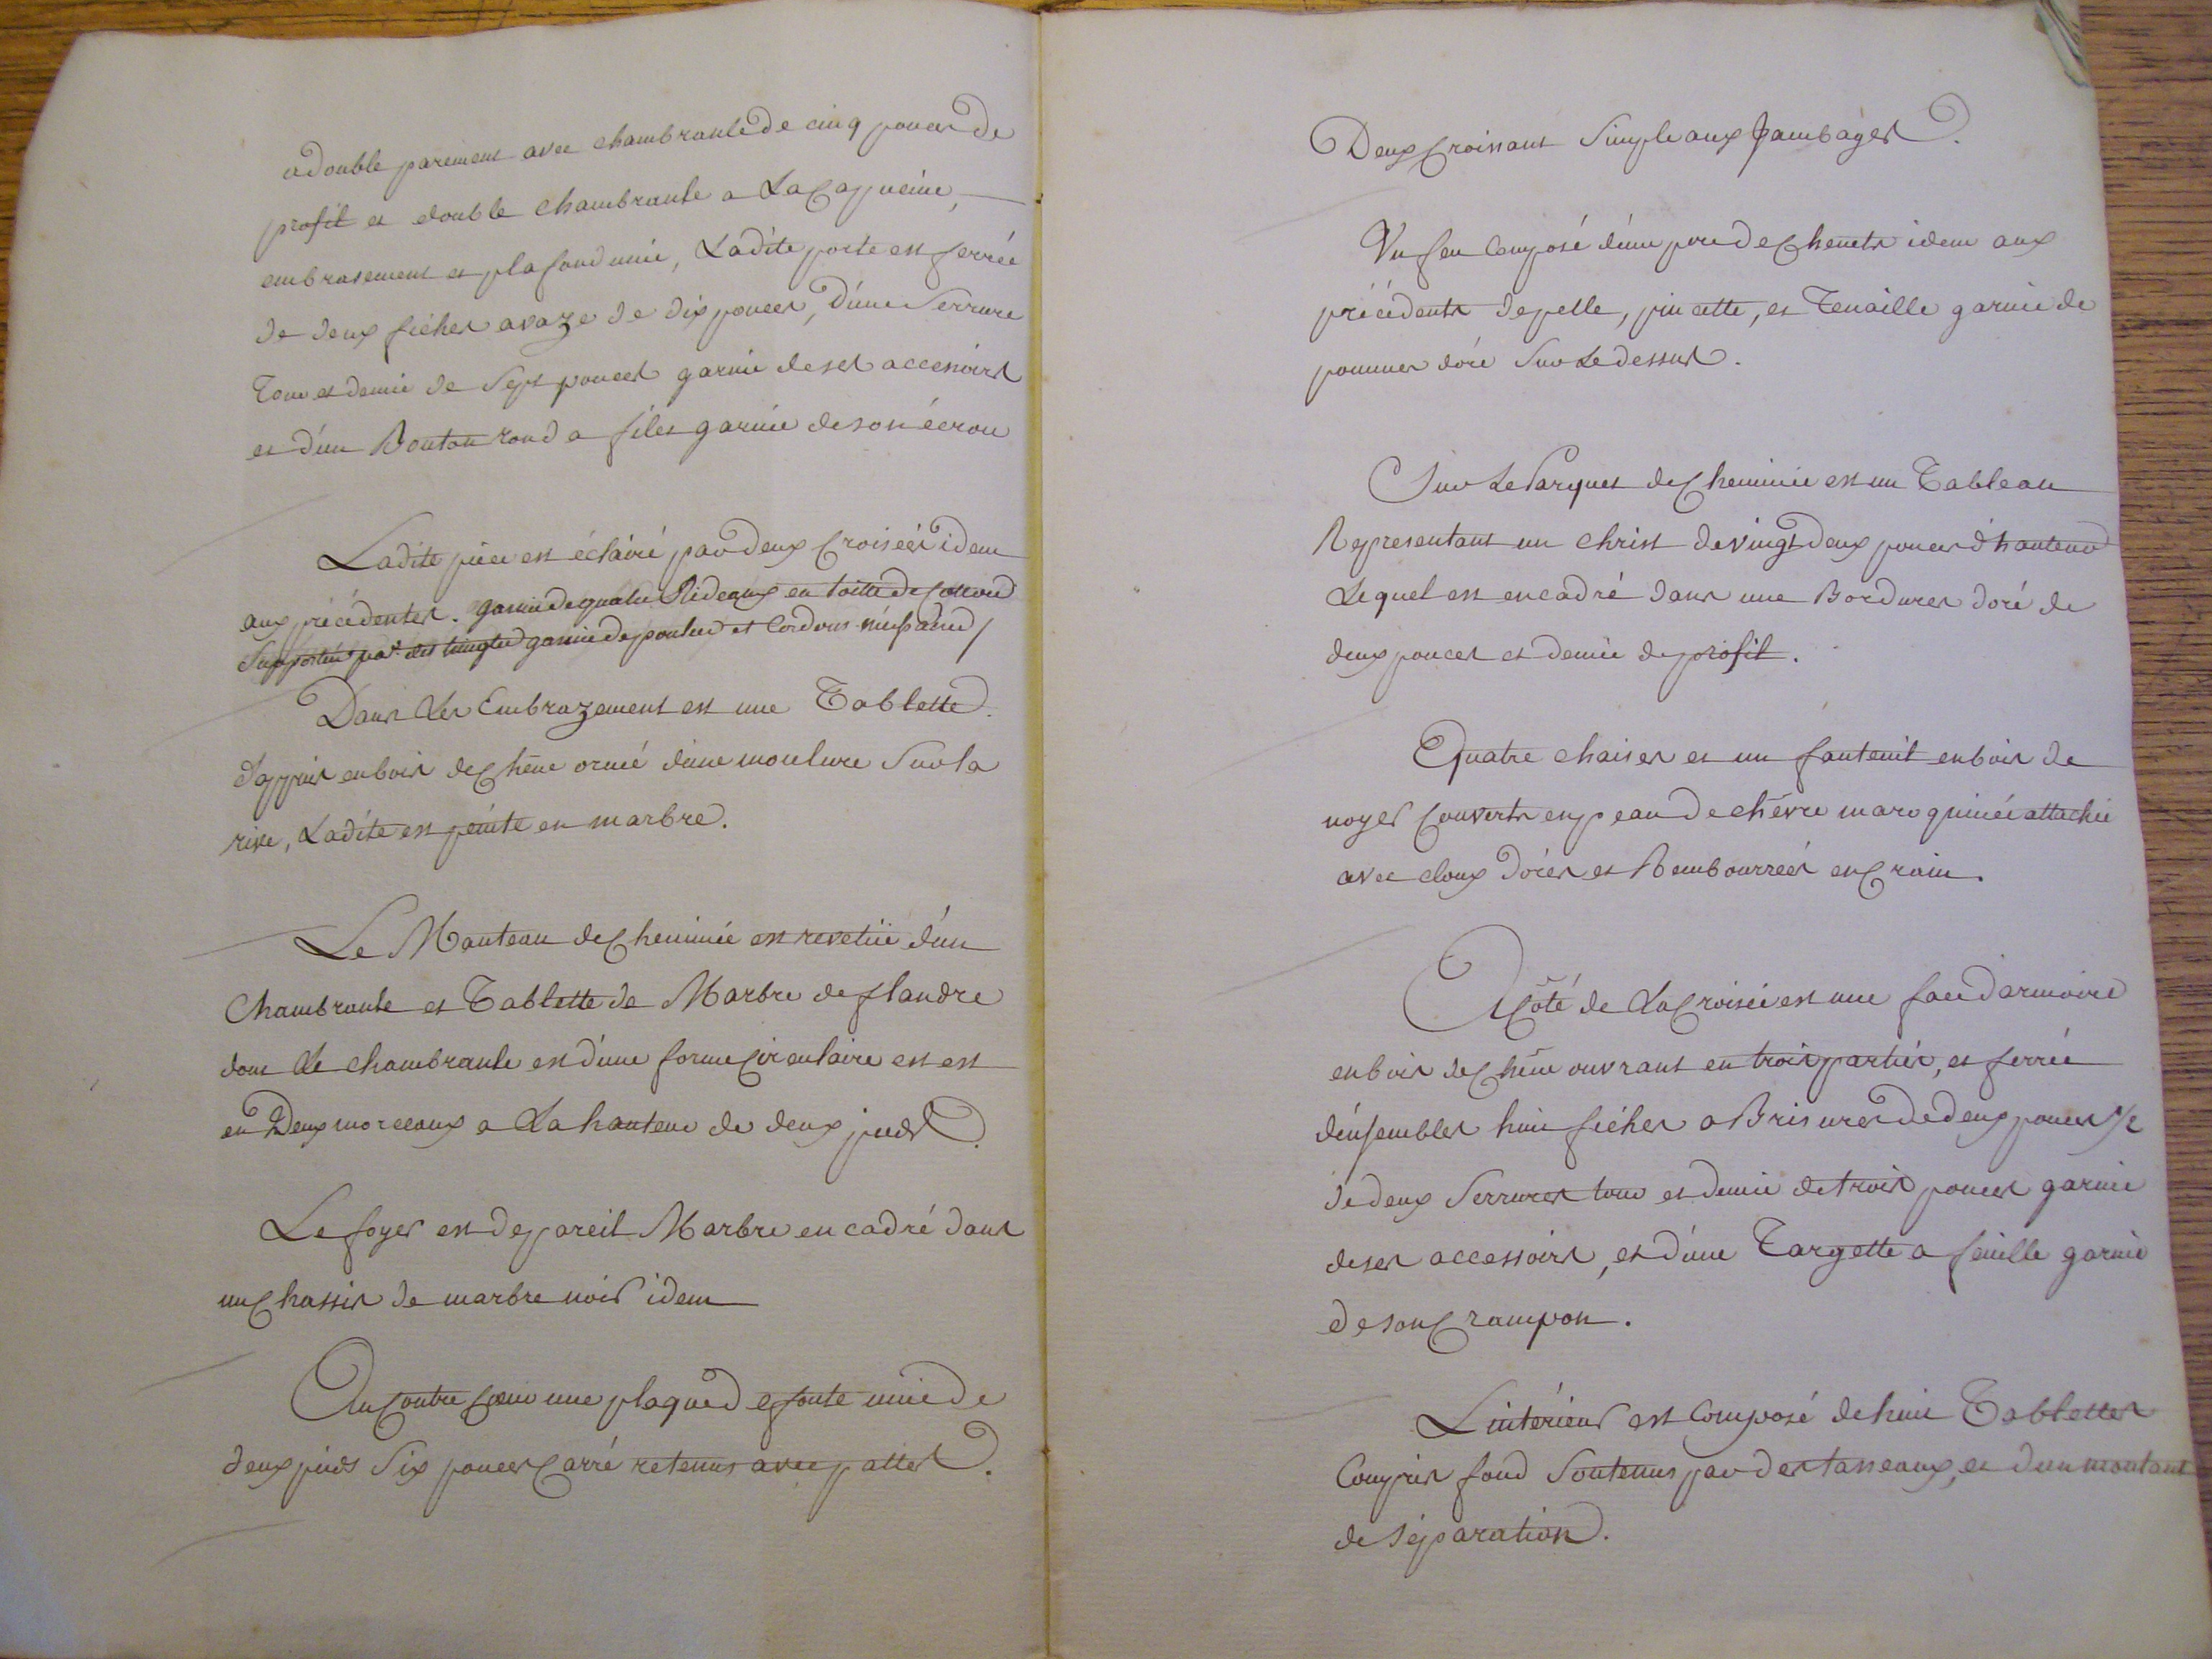 a double parement avec chambranle de cinq pouces de
profil et double chambranle a La Capucine,
embrasement et plafond unie, Ladite porte est ferrée
de deux fiches a vaze de dix pouces, d'une Serrure
Tour et demie de Sept pouces garnie de ses accessoirs
et d'un Bouton rond a filet garnie de son écrou
Ladite piece est éclairé par deux Croisées idem
aux précédentes. garnie de quatre Rideaux en toille de Cotton
Supportée par des tringles garnie de poulies et Cordons
Dans Les Embrazement est une Tablette
d'appuis en bois de Chêne orné d'une moulure Sur la
rive, Ladite est peinte en marbre.
Le Manteau de Cheminée est revetüe d'un
Chambranle et Tablette de Marbre de flandre
dont Le chambranle est d'une forme Circulaire est est
en Deux morceaux a La hauteur de deux pieds.
Le foyer est de pareil Marbre encadré dans
un Chassis de marbre noir idem
Au Contre Coeur une plaque de fonte unie de
deux pieds Six pouces Carré retenus avec pattes.
Deux Croissant Simple aux Jambages.
Un feu Composé d'une paire de Chenets idem aux
précédents de pelle, pincette, et Tenaille garnie de
pommes doré Sur Le dessus.
Sur Le Parquet de Cheminée est un Tableau
Representant un Christ de vingt deux pouces d'hauteur
Lequel est encadré dans une Bordures doré de
deux pouces et demie de profil.
Quatre chaises et un fauteuil en bois de
noyer Couverts en peau de chévre maroquinée attachée
avec cloux dorés et Rembourreés en Crain.
A Côté de La Croisée est une face d'armoire
en bois de Chêne ouvrant en trois parties, et ferrée
d'ensembles huit fiches a Brisures de deux pouces 1/2
de deux Serrures tour et demie de trois pouces garnie
de ses accessoirs, et d'une Targette a feuille garnie
de son Crampon.
L'intérieur est Composé de huit Tablettes
Compris fond Soutenus par des tasseaux, et d'un montant
de Séparation.